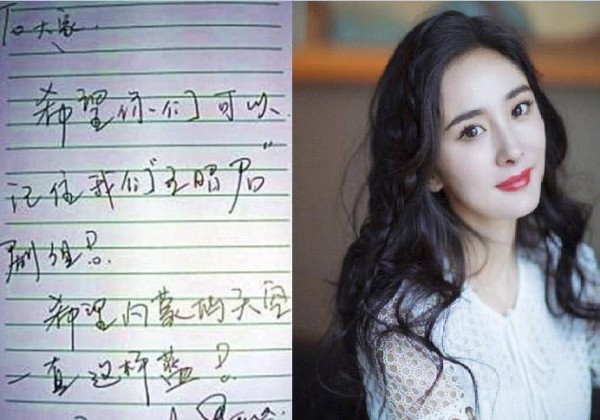 To大家:
希望你们可以
记住我们“王昭君”
剧组!
希望内蒙的天空
一直这样蓝!